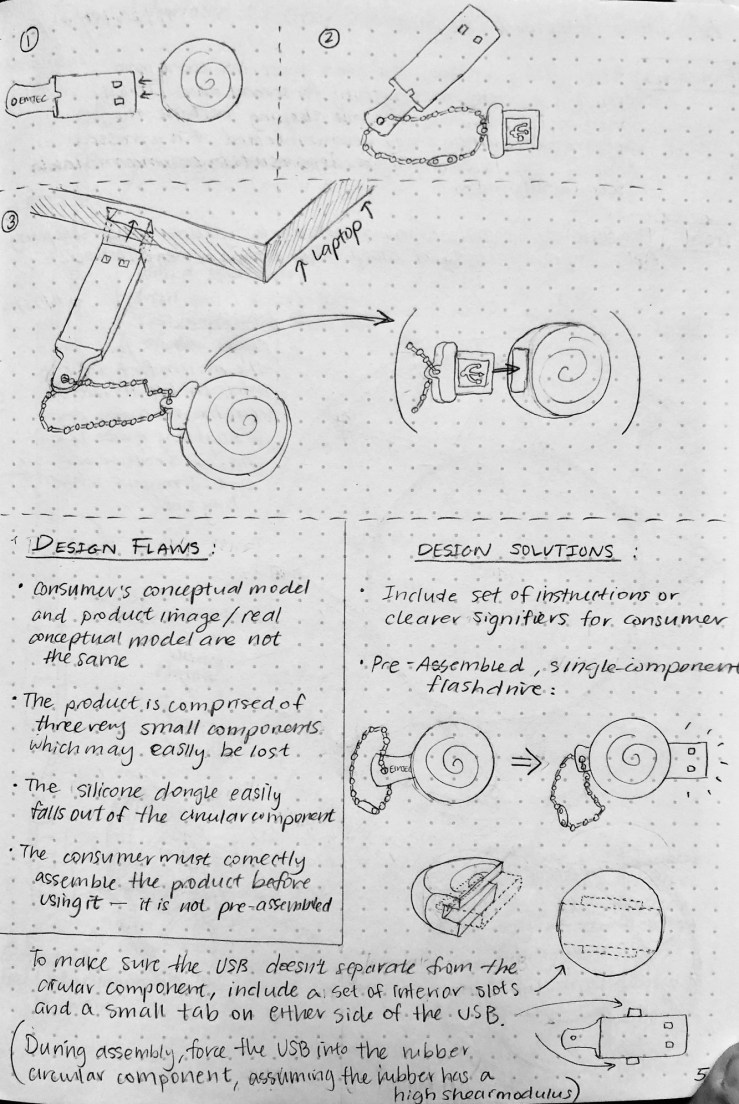 1
EMTEC
2
3
↑ Laptop ↑
DESIGN FLAWS:
• Consumer's conceptual model
and product image/real
conceptual model are not
the same
• The product is comprised of
three very small components
which may easily be lost
• The silicone dongle easily
falls out of the circular component
• The consumer must correctly
assemble the product before
using it — it is not pre-assembled
DESIGN SOLUTIONS:
• Include set of instructions or
clearer signifiers for consumer
• Pre-Assembled, single-component
flashdrive:
EMTEC
To make sure the USB doesn't separate from the
circular component, include a set of interior slots
and a small tab on either side of the USB.
(During assembly, force the USB into the rubber
circular component, assuming the rubber has a
high shear modulus)
5